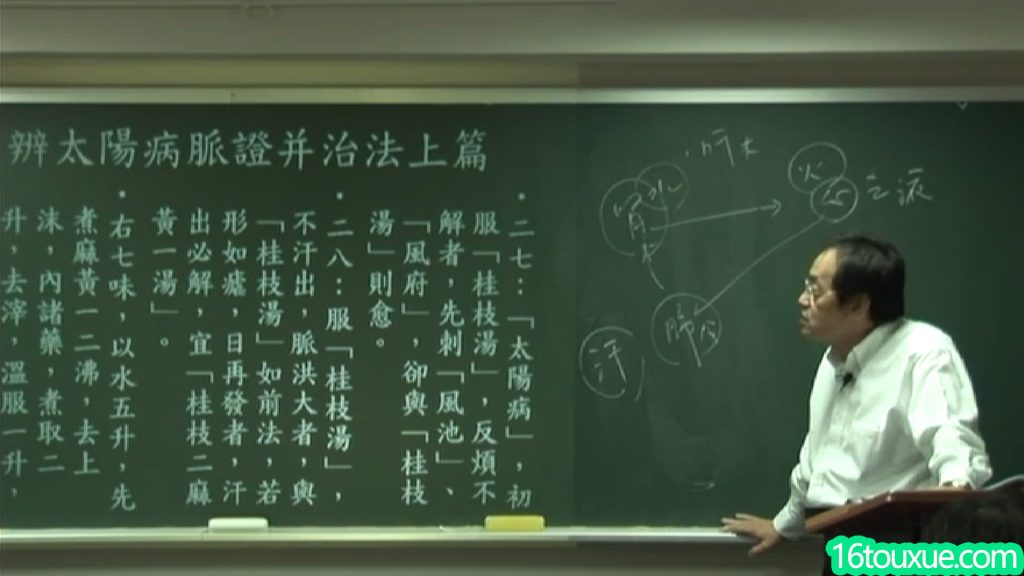 辨太陽病脈證并治法上篇
・二七：「太陽病」，初
服「桂枝湯」，反煩不
解者，先刺「風池」、
「風府」，卻與「桂枝
湯」則愈。
・二八：服「桂枝湯」，
不汗出，脈洪大者，與
「桂枝湯」如前法，若
形如瘧，日再發者，汗
出必解，宜「桂枝二麻
黃一湯」。
・右七味，以水五升，先
煮麻黃一二沸，去上
沫，內諸藥，煮取二
升，去滓，溫服一升，
水
腎
火
心
之液
肺
汗
16touxue.com